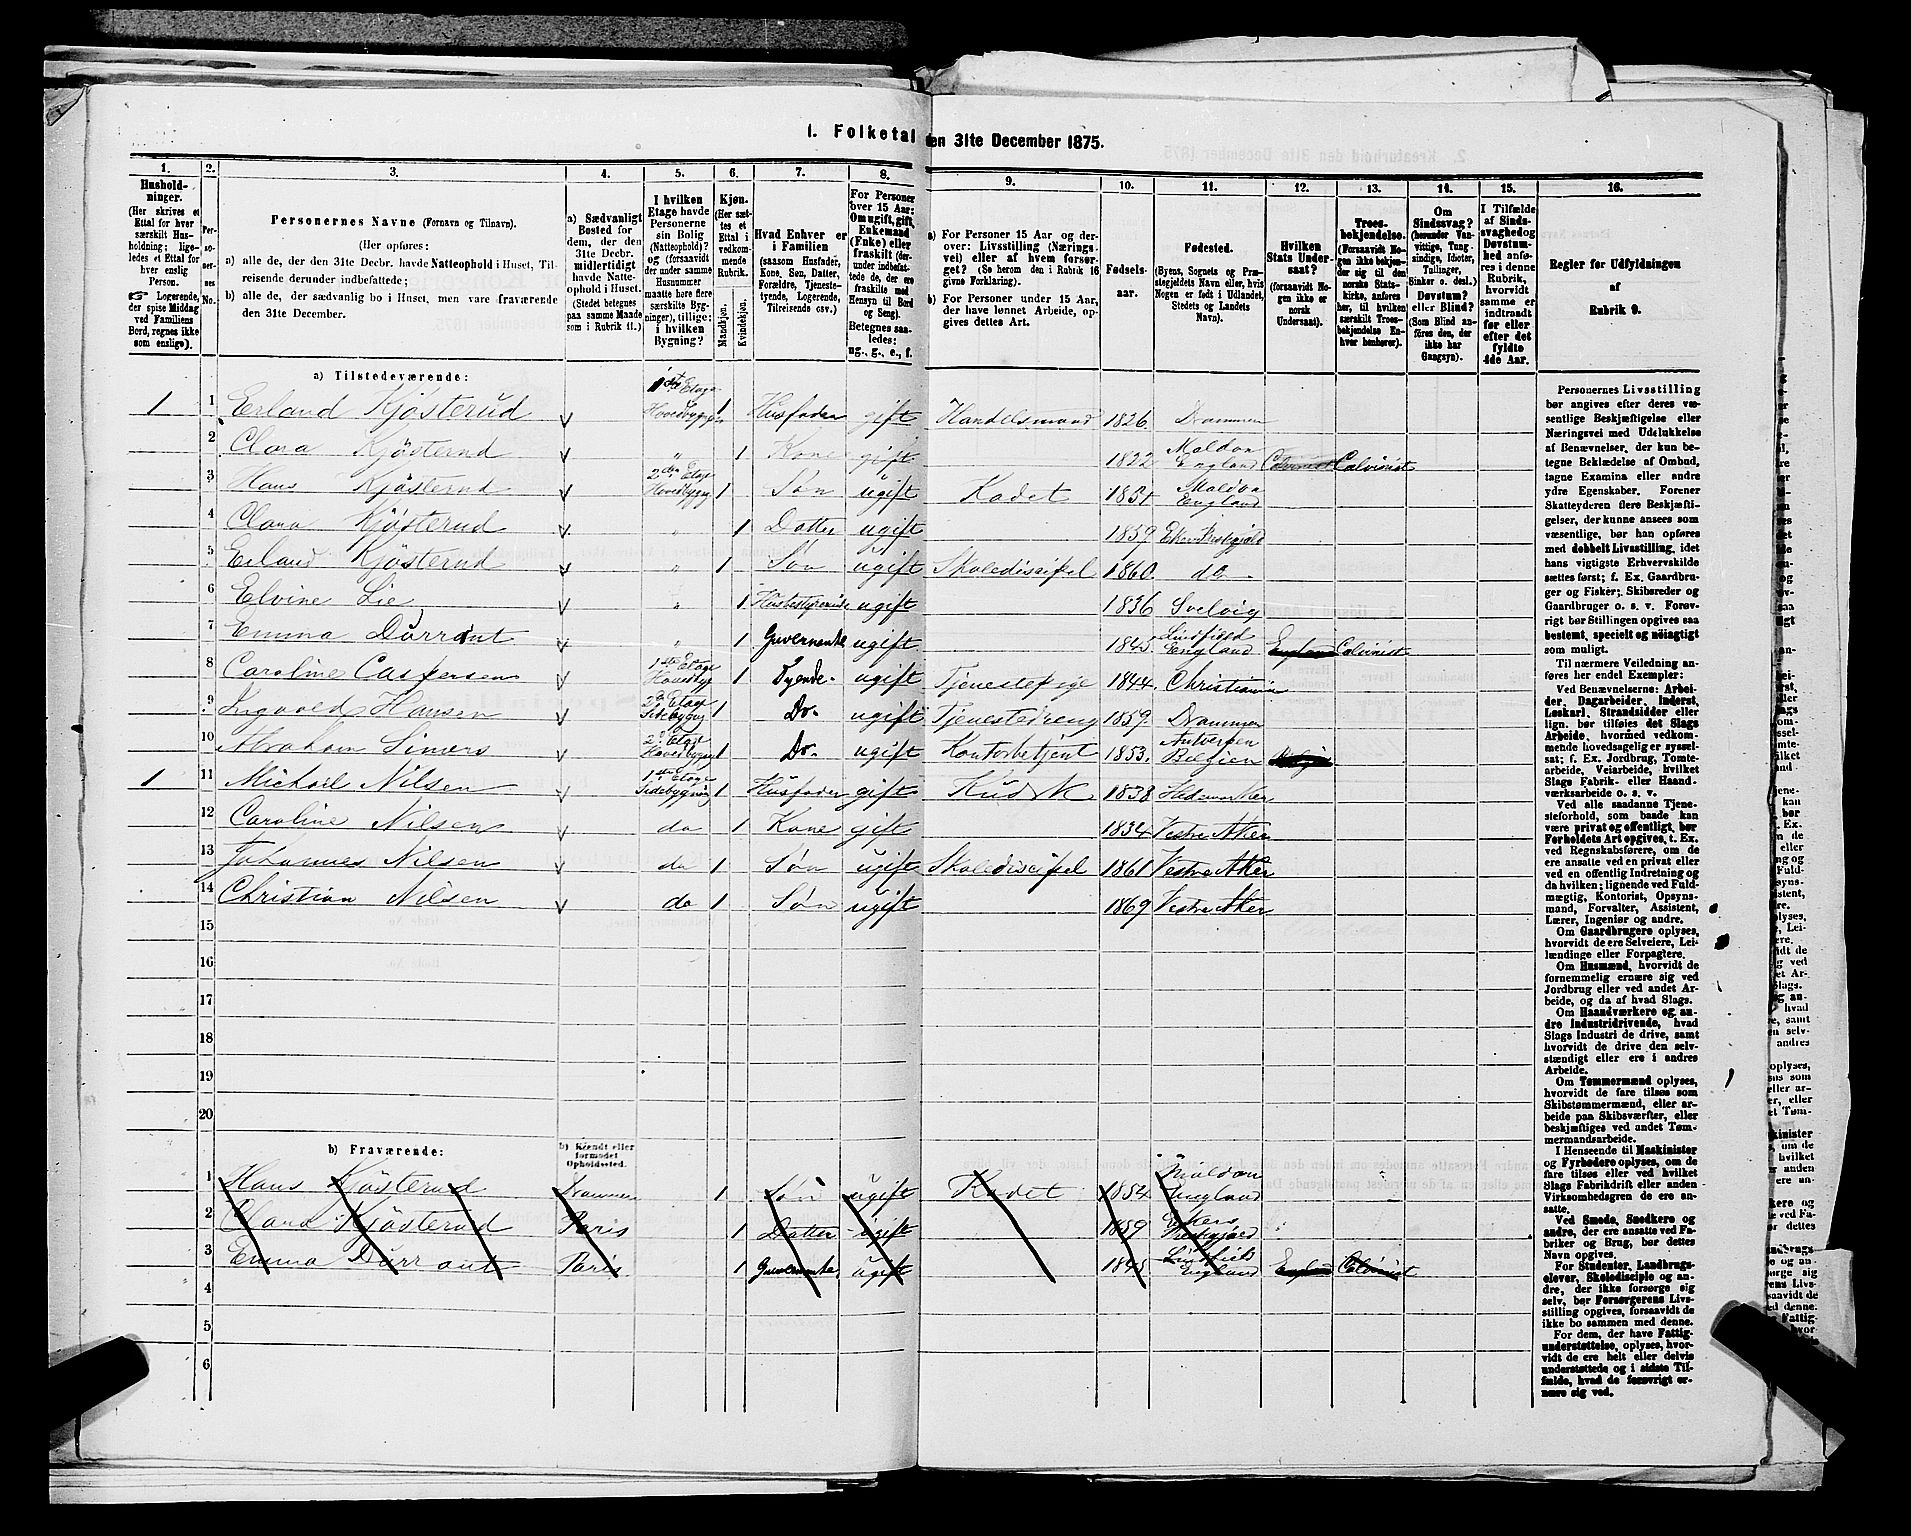 1. Folketal den 31te December 1875.
1. 2. 3. 4. 5. 6. 7. 8. 9. 10. 11. 12. 13. 14. 15. 16.
Hushold-
ninger.
(Her skrives et
Ettal for hver
særskilt Hus-
holdning; lige-
ledes et Ettal for
hver enslig
Person.
☞ Logerende,
der spise Middag
ved Familiens
Bord, regnes ikke
som enslige).
Per-
so-
ner-
nes
No.
Personernes Navne (Fornavn og Tilnavn).
(Her opføres:
a) alle de, der den 31te Decbr. havde Natteophold i Huset, Til-
reisende derunder indbefattede;
b) alle de, der sædvanlig bo i Huset, men vare fraværende
den 31te December.
a) Sædvanligt
Bosted for
dem, der den
31te Decbr.
midlertidigt
havde Natte-
ophold i Huset.
(Stedet betegnes
paa samme Maade
som i Rubrik 11.)
I hvilken
Etage havde
Personerne
sin Bolig
(Natteophold)?
og (forsaavidt
der under samme
Husnummer
maatte høre flere
særskilte Byg-
ninger), tillige:
i hvilken
Bygning?
Kjøn.
(Her sæt-
tes et
Ettal i
vedkom-
mende
Rubrik.
Mandkjøn.
Kvindekjøn.
Hvad Enhver er
i Familien
(saasom Husfader,
Kone, Søn, Datter,
Forældre, Tjeneste-
tyende, Logerende,
Tilreisende osv.)
For Personer
over 15 Aar:
Om ugift, gift,
Enkemand
(Enke) eller
fraskilt (der-
under indbefat-
tede de, der ere
fraskilte med
Hensyn til Bord
og Seng).
Betegnes saa-
ledes:
ug., g., e., f.
a) For Personer 15 Aar og der-
over: Livsstilling (Nærings-
vei) eller af hvem forsør-
get? (Se herom den i Rubrik 16
givne Forklaring).
b) For Personer under 15 Aar,
der have lønnet Arbeide, op-
gives dettes Art.
Fødsels-
aar.
Fødested.
(Byens, Sognets og Præ-
stegjeldets Navn eller, hvis
Nogen er født i Udlandet,
Stedets og Landets
Navn).
Hvilken
Stats Under-
saat?
(forsaavidt No-
gen ikke er
norsk
Undersaat).
Troes-
bekjendelse.
(Forsaavidt No-
gen ikke bekjen-
der sig til den
norske Stats-
kirke, anføres
her, til hvilken
særskilt Troes-
bekjendelse En-
hver henhører).
Om
Sindssvag?
(herunder Van-
vittige, Tung-
sindige, Idioter,
Tullinger,
Sinker o. desl.)
Døvstum?
eller Blind?
(Som Blind an-
føres den, der
ikke har
Gangsyn).
I Tilfælde
af Sinds-
svaghed og
Døvstum-
hed anfø-
res i denne
Rubrik,
hvorvidt
samme er
indtraadt
før eller
efter det
fyldte
4de Aar.
Regler for Udfyldningen
af
Rubrik 9.
a) Tilstedeværende:
1 1 Erland Kjøsterud 1ste Etage Hovedbygg. 1 Husfader gift Handelsmand 1826. Drammen
2 Clara Kjøsterud " 1 Kone gift 1822 Maldon England Calvinist Calvinist
3 Hans Kjøsterud 2den Etage Hovedbygg 1 Søn ugift Kadet 1854 Maldon England
4 Clara Kjøsterud " 1 Datter ugift 1859 Eker Prestegjæld
5 Erland Kjøsterud " 1 Søn ugift Skolediscipel 1860. do
6 Elvine Lie " 1 Husbestyrerinde ugift 1836 Svelvig
7 Emma Durrant " 1 Guvernante ugift 1845 Lindfield England England Calvinist
8 Caroline Caspersen 1ste Etage Hovedbyg 1 Tyende. ugift Tjenestepige 1844. Christiania
9 Ingvald Hansen 2den Etage Sidebygng 1 Do. ugift Tjenestedreng 1859. Drammen
10 Abraham Simers 2d Etage Hovedbygng 1 Do. ugift Kontorbetjent 1853. Antverpen Belgien
1 11 Michael Nilsen 1ste Etage Sidebygning 1 Husfader gift Kudsk 1838 Hedemarken
12 Caroline Nilsen do 1 Kone gift 1834 Vestre Aker
13 Johannes Nilsen do 1 Søn ugift Skolediscipel 1861 Vestre Aker
14 Christian Nilsen do 1 Søn ugift 1869 Vestre Aker
15
16
17
18
19
20
b) Fraværende:
b) Kjendt eller
formodet
Opholdssted.
1 Hans Kjøsterud Drammen 1 Søn ugift Kadet 1854 Maldon England
2 Clara Kjøsterud Paris 1 Datter ugift 1859 Ekers Prestegjæld
3 Emma Durrant Paris. 1 Guvernante, ugift 1845 Lindfield England England Calvinist
4
5
6
Personernes Livsstilling
bør angives efter deres væ-
sentlige Beskjæftigelse eller
Næringsvei med Udelukkelse
af Benævnelser, der kun be-
tegne Beklædelse af Ombud,
tagne Examina eller andre
ydre Egenskaber. Forener
Skatteyderen flere Beskjæfti-
gelser, der kunne ansees som
væsentlige, bør han opføres
med dobbelt Livsstilling, idet
hans vigtigste Erhvervskilde
sættes først; f. Ex. Gaardbru-
ger og Fisker; Skibsreder og
Gaardbruger o. s. v. Forøv-
rigt bør Stillingen opgives saa
bestemt, specielt og nøiagtigt
som muligt.
Til nærmere Veiledning an-
føres her endel Exempler:
Ved Benævnelserne: Arbei-
der, Dagarbeider, Inderst,
Løskarl, Strandsidder eller
lign. bør tilføies det Slags
Arbeide, hvormed vedkom-
mende hovedsagelig er syssel-
sat; f. Ex. Jordbrug, Tomte-
arbeide, Veiarbeide, hvilket
Slags Fabrik- eller Haand-
værksarbeide o. s. v.
Ved alle saadanne Tjene-
steforhold, som baade kan
være privat og offentligt, bør
Forholdets Art opgives, t. Ex.
ved Regnskabsførere, om de
ere ansatte ved en privat eller
ved en offentlig Indretning og
da hvilken; lignende ved Fuld-
mægtig, Kontorist, Opsyns-
mand, Forvalter, Assistent,
Lærer, Ingeniør og andre.
Om Gaardbrugere oplyses,
hvorvidt de ere Selveiere, Lei-
lændinge eller Forpagtere.
Om Husmænd, hvorvidt de
fornemmelig ernære sig ved
Jordbrug eller ved andet Ar-
beide, og da af hvad Slags.
Om Haandværkere og an-
dre Industridrivende, hvad
Slags Industri de drive, samt
hvorvidt de drive den selv-
stændigt eller ere i andres
Arbeide.
Om Tømmermænd oplyses,
hvorvidt de fare tilsøs som
Skibstømmermænd, eller ar-
beide paa Skibsværfter, eller
beskjæftiges ved andet Tøm-
mermandsarbeide.
I Henseende til Maskinister
og Fyrbødere oplyses, om de
fare tilsøs eller ved hvilket
Slags Fabrikdrift eller anden
Virksomhedsgren de ere an-
satte.
Ved Smede, Snedkere og
andre, der ere ansatte ved Fa-
briker og Brug, bør dettes
Navn opgives.
For Studenter, Landbrugs-
elever, Skoledisciple og an-
dre, der ikke forsørge sig
selv, bør Forsørgerens Livs-
stilling opgives, forsaavidt de
ikke bo sammen med denne.
For dem, der have Fattig-
understøttelse, oplyses, hvor-
vidt de ere helt eller delvis
understøttede og i sidste Til-
fælde, hvad de forøvrigt er-
nære sig ved.